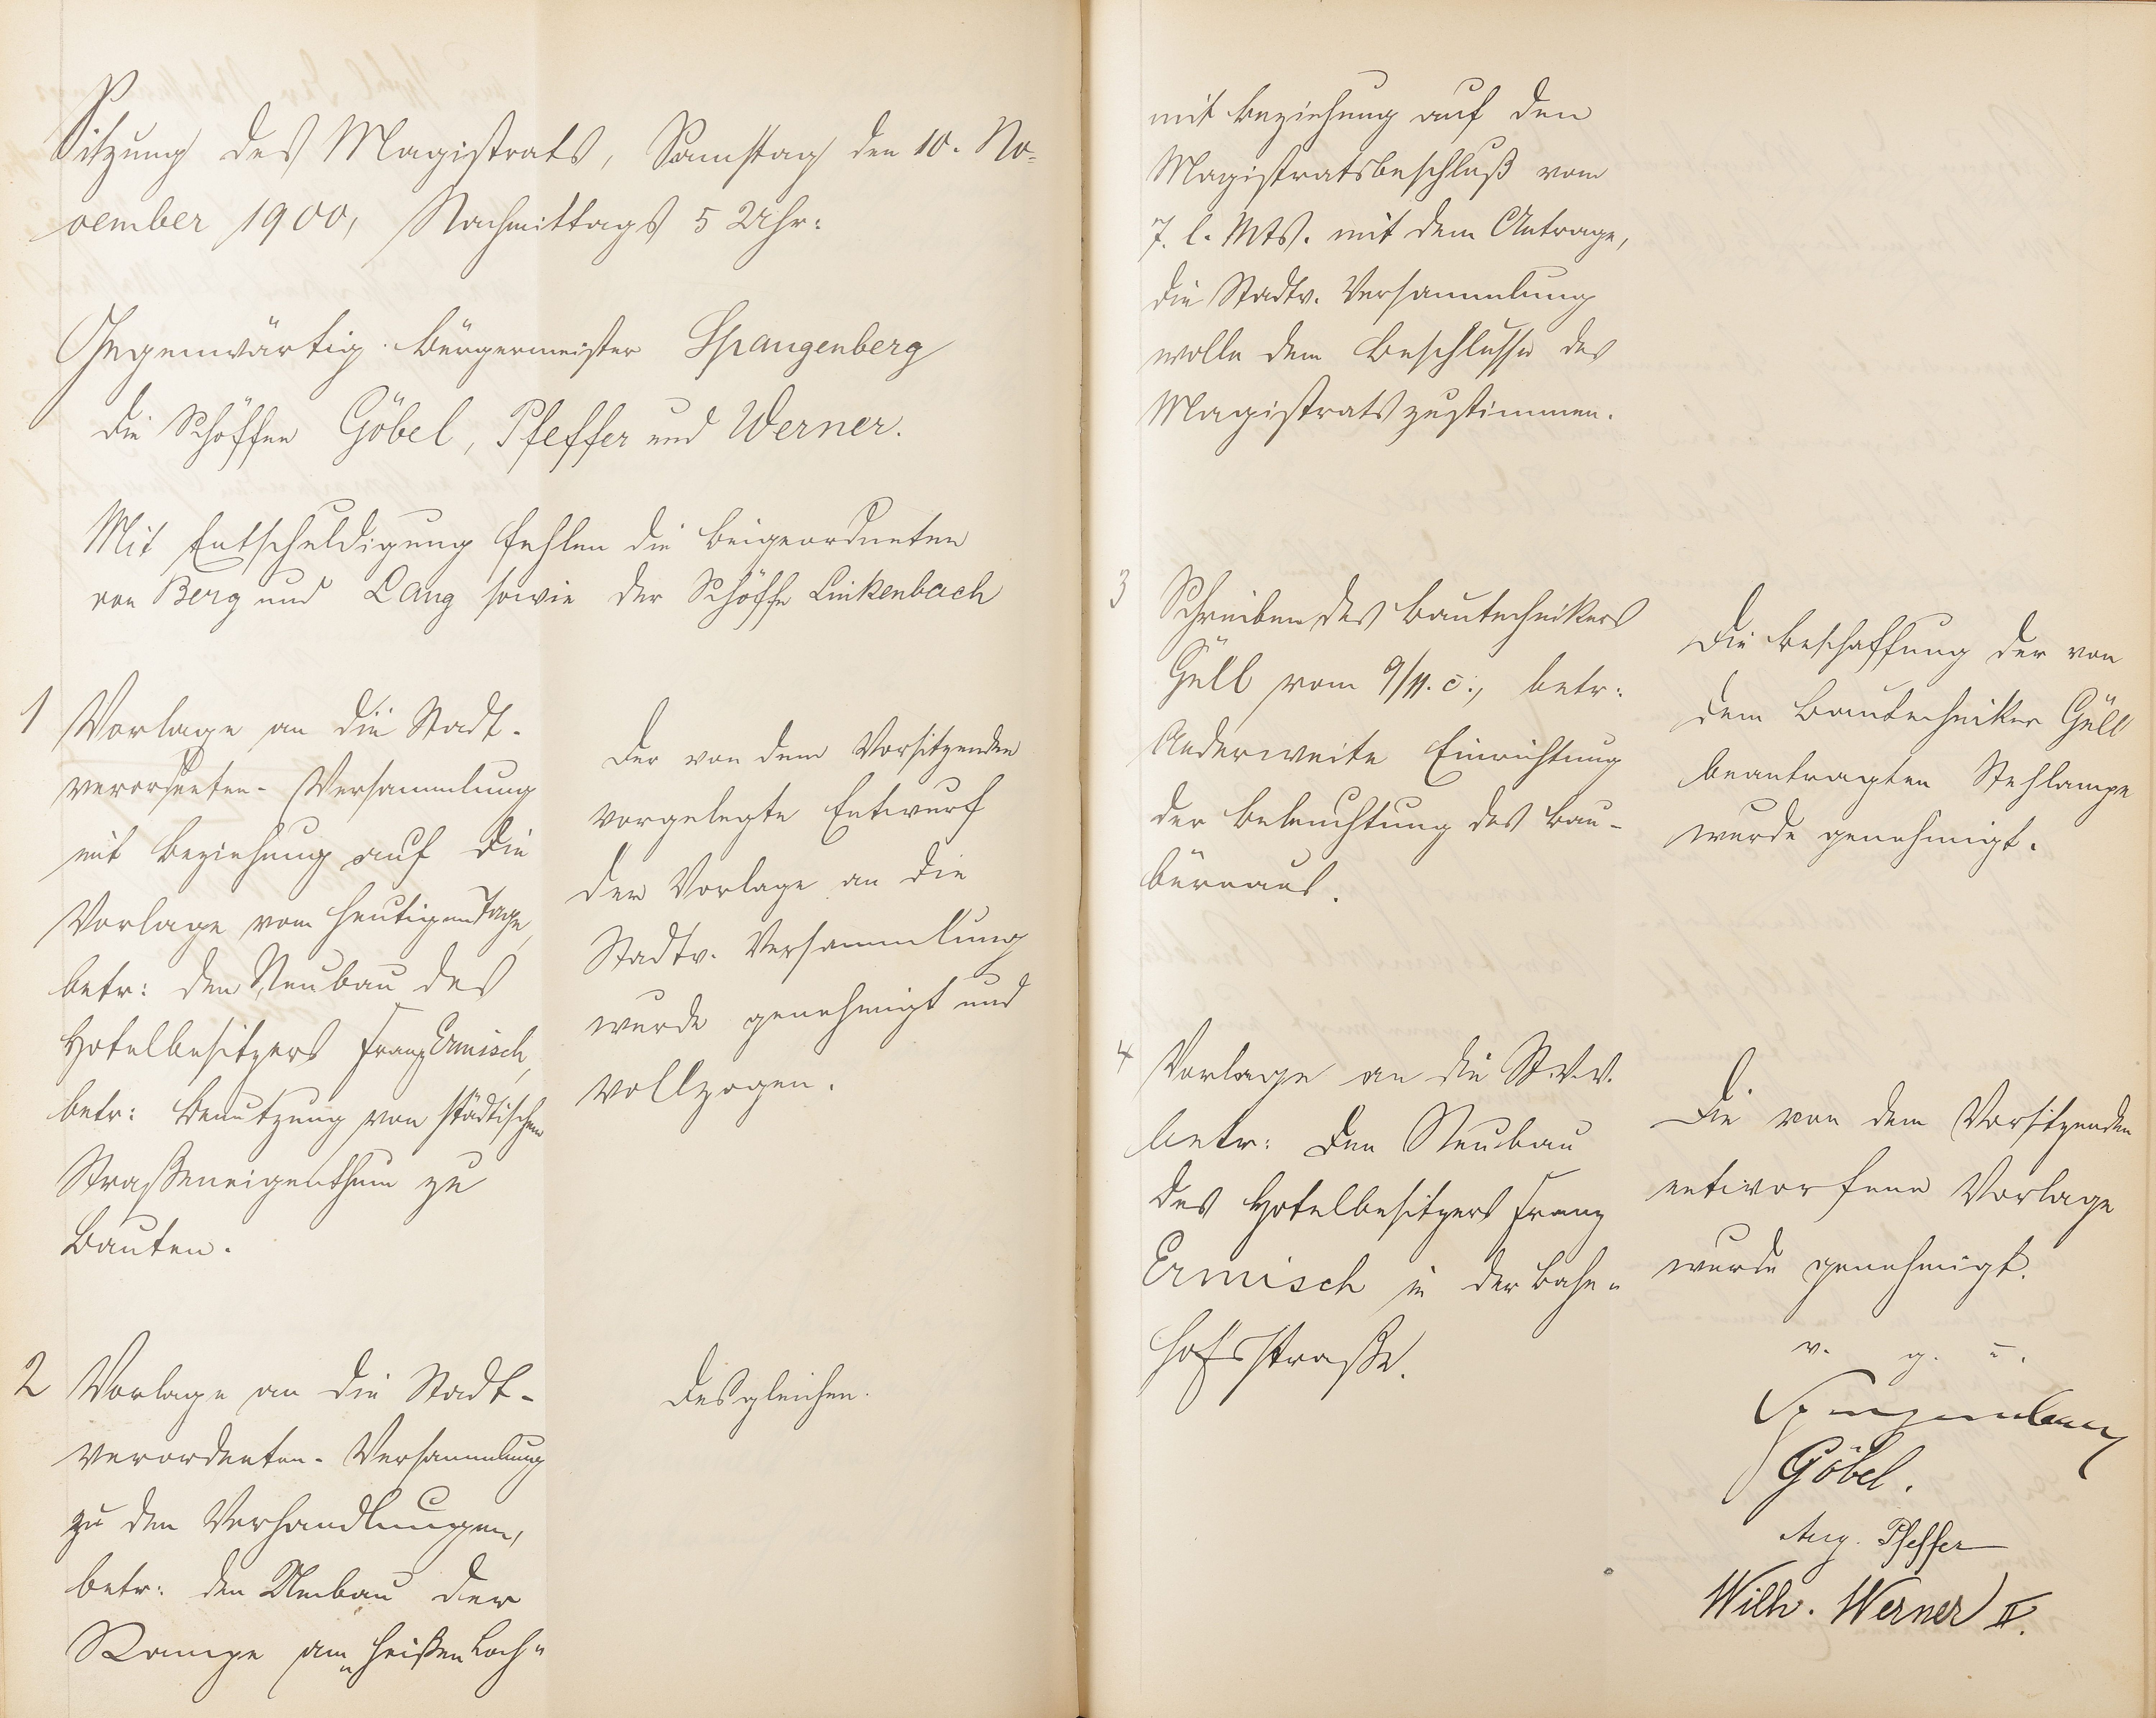 Sitzung des Magistrats, Samstag den 10. No-
vember 1900, Nachmittags 5 Uhr:
Gegenwärtig: Bürgermeister Spangenberg
die Schöffen Göbel, Pfeffer und Werner.
Mit Entschuldigung fehlen die Beigeordneten
von Berg und Lang sowie der Schöffe Linkenbach
1 Vorlage an die Stadt-
verordneten-Versammlung
mit Beziehung auf die
Vorlage vom heutigen Tage,
betr: den Neubau des
Hotelbesitzers Franz Ermisch,
betr: Benutzung von städtischem
Straßeneigenthum zu
Bauten.
Der von dem Vorsitzenden
vorgelegte Entwurf
der Vorlage an die
Stadtv. Versammlung
wurde genehmigt und
vollzogen.
2 Vorlage an die Stadt-
verordneten-Versammlung
zu den Verhandlungen,
betr: den Umbau der
Rampe am „heißen Loch"
Desgleichen.
mit Beziehung auf den
Magistratsbeschluß vom
7. l. Mts. mit dem Antrage,
die Stadtv. Versammlung
wolle dem Beschlusse des
Magistrats zustimmen.
3 Schreiben des Bautechnikers
Güll vom 9/11. c., betr:
Anderweite Einrichtung
der Beleuchtung des Bau-
büreaus.
Die Beschaffung der von
dem Bautechniker Güll
beantragten Stehlampe
wurde genehmigt.
4 Vorlage an die St.V.V.
betr: den Neubau
des Hotelbesitzers Franz
Ermisch in der Bahn-
hofsstraße.
Die von dem Vorsitzenden
entworfene Vorlage
wurde genehmigt.
v. g. u.
Spangenberg
Göbel.
Aug. Pfeffer
Wilh. Werner II.